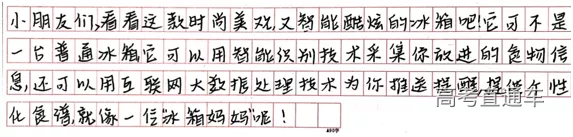 小朋友们,看看这款时尚美观,又智能酷炫的冰箱吧!它可不是
一台普通冰箱它可以用智能识别技术采集你放进的食物信
息,还可以用互联网大数据处理技术为你推送提醒提供个性
化食谱,就像一位"冰箱妈妈"呢!
高考直通车